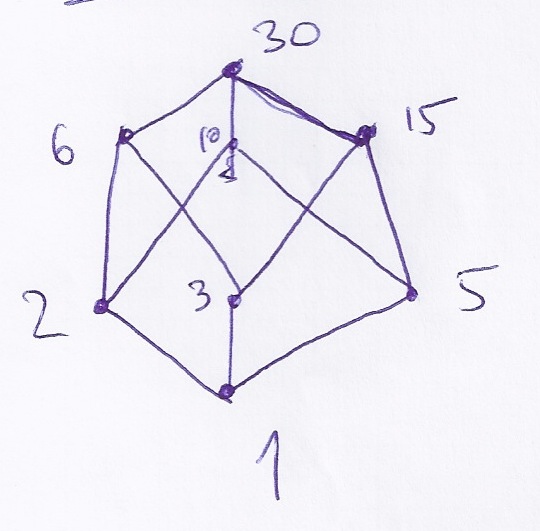 30
6 10 15
2 3 5
1